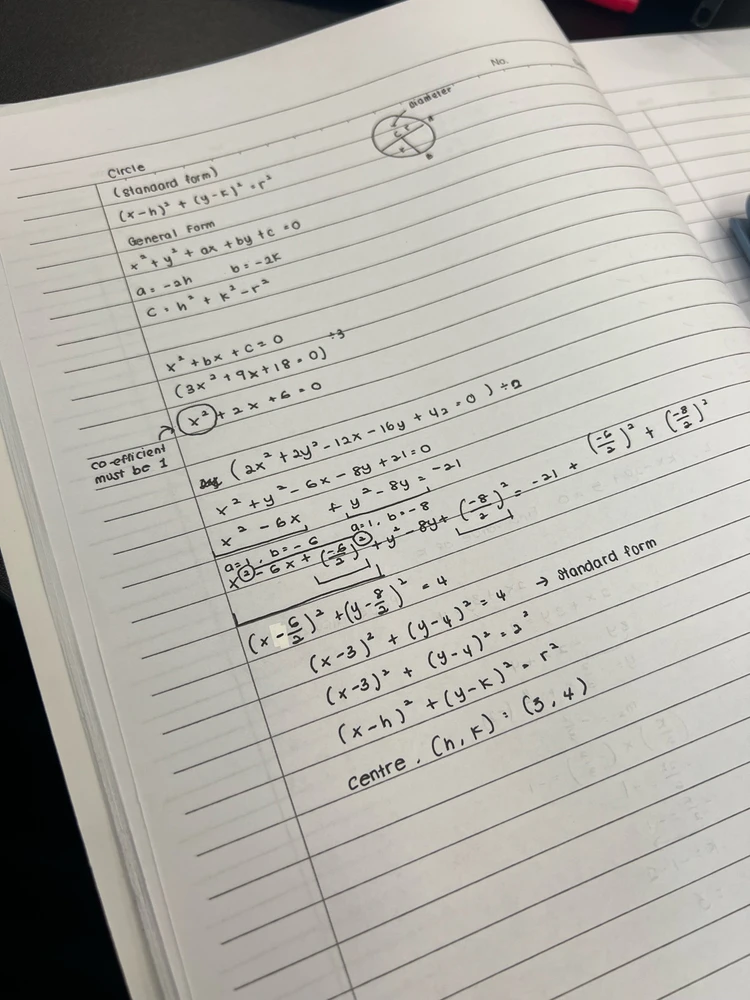 No.
Diameter
Circle
(standard form)
(x-h)² + (y-k)² = r²
General Form
x² + y² + ax + by + c = 0
a = -2h b = -2k
c = h² + k² - r²
x² + bx + c = 0
(3x² + 9x + 18 = 0) ÷3
x² + 2x + 6 = 0
co-efficient
must be 1
(2x² + 2y² - 12x - 16y + 42 = 0) ÷2
x² + y² - 6x - 8y + 21 = 0
x² - 6x + y² - 8y = -21
a=1, b=-6 a=1, b=-8
x² - 6x + (-6/2)² + y² - 8y + (-8/2)² = -21 + (-6/2)² + (-8/2)²
(x - 6/2)² + (y - 8/2)² = 4
(x-3)² + (y-4)² = 4 → standard form
(x-3)² + (y-4)² = 2²
(x-h)² + (y-k)² = r²
centre, (h,k) = (3,4)